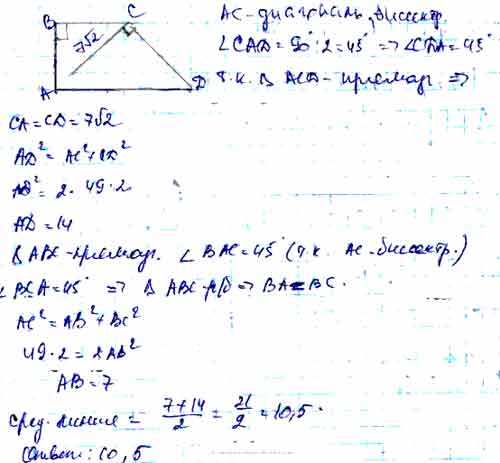 B C
7√2
A D
AC-диагональ, биссектр.
∠CAD = 90°:2 = 45° => ∠CDA = 45°
т.к. Δ ACD - прямоуг. =>
CA = CD = 7√2
AD² = AC² + CD²
AD² = 2 · 49 · 2
AD = 14
Δ ABC - прямоуг. ∠BAC = 45° (т.к. AC - биссектр.)
∠BCA = 45° => Δ ABC - р/б => BA = BC.
AC² = AB² + BC²
49 · 2 = 2AB²
AB = 7
сред. линия = (7+14)/2 = 21/2 = 10,5.
Ответ: 10,5